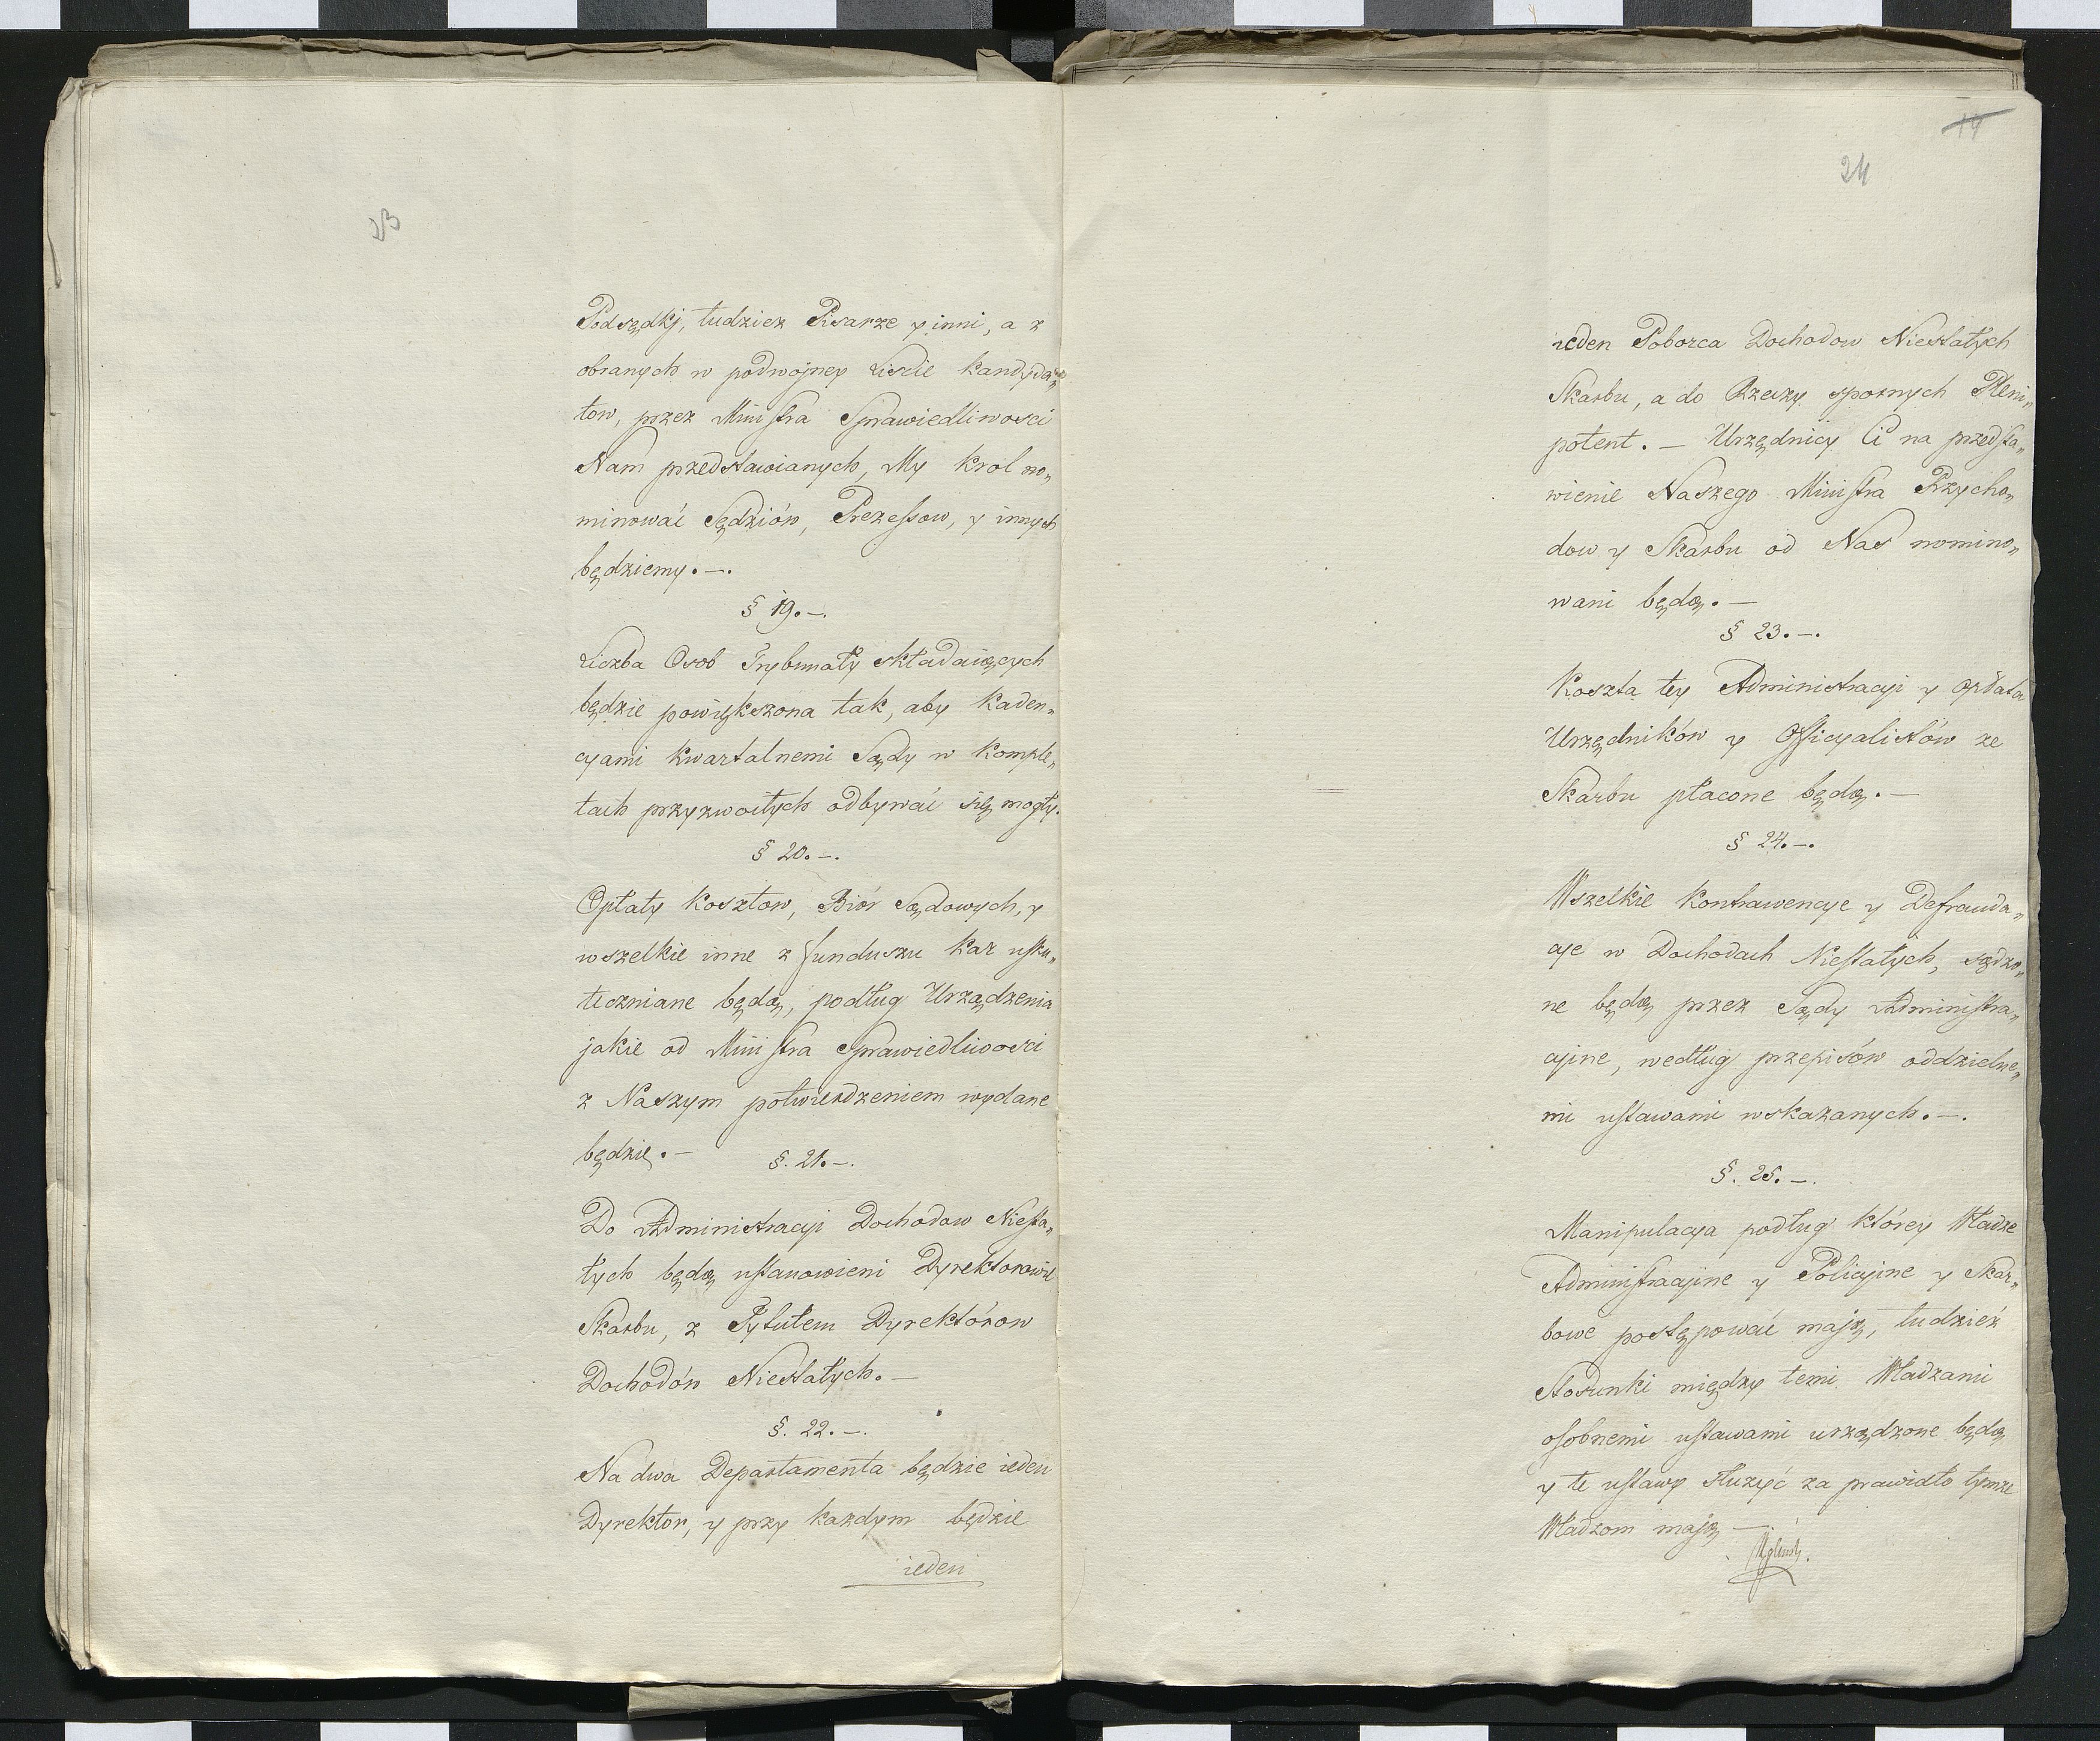 23
Podsędkj, tudziez Pisarze y inni, a z
obranych w podwojney Liscie Kandyda„
tow, przez Ministra Sprawiedliwosci
Nam przedstawianych, My Krol no„
minować Sędziów, Prezessow, y innych
będziemy.—.
§ 19.—.
Liczba Osob Trybunały składaiących
będzie powiększona tak, aby Kaden„
cyami kwartalnemi Sądy w Komple„
tach przyzwoitych odbywać się mogły.
§ 20.—.
Opłaty Kosztow, Biór Sądowych, y
wszelkie inne z funduszu Kar usku„
teczniane będą, podług Urządzenia
jakie od Ministra Sprawiedliwosci
z Naszym potwierdzeniem wydane
będzie.— §. 21.—.
Do Administracyi Dochodow Niesta„
łych będą ustanowieni Dyrektorowie
Skarbu, z Tytułem Dyrektórow
Dochodów Niestałych.—
§. 22.—.
Na dwa Departamenta będzie ieden
Dyrektor, y przy kazdym będzie
ieden
14
24
ieden Poborca Dochodow Niestałych
Skarbu, a do Rzeczy spornych Pleni„
potent.— Urzędnicy Ci na przedsta„
wienie Naszego Ministra Przycho„
dow y Skarbu od Nas nomino„
wani będą.—
§ 23.—.
Koszta tey Administracyi y opłata
Urzędników y Officyalistów ze
Skarbu płacone będą.—
§ 24.—.
Wszelkie Kontrawencye y Defrauda„
cye w Dochodach Niestałych, sądzo„
ne będą przez Sądy Administra„
cyine, według przepisów oddzielne„
mi ustawami wskazanych.—.
§. 25.—.
Manipulacya podług którey Władze
Administracyine y Policyine y Skar„
bowe postępować mają, tudzież
Stosunki między temi Władzami
osobnemi ustawami urządzone będą
y te ustawy służyć za prawidło tymze
Władzom mają —.